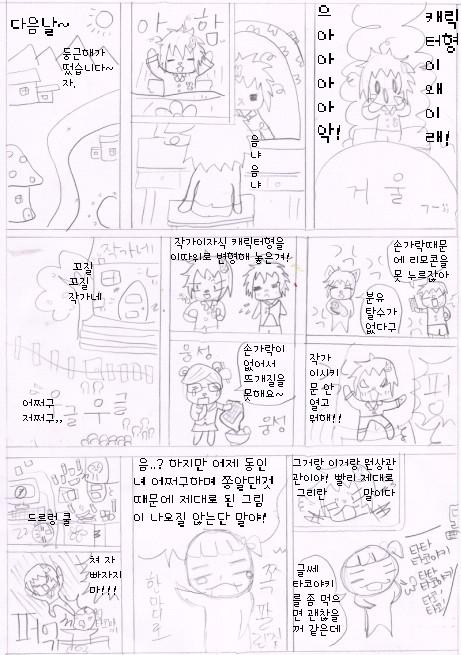 다음날~
둥근해가
떴습니다~
자.
아
함
음
냐
음
냐
으
아
아
아
아
악!
캐릭
터형
이
왜이
래!
거울
작가네
꼬질
꼬질
작가네
어쩌구
저쩌구,,
글
우
글
작가이자식 캐릭터형을
이따위로 변형해 놓은겨!
손가락때문
에 리모콘을
못 누르잖아
분유
탈수가
없다구
웅성
손가락이
없어서
뜨개질을
못해요~
웅성
작가
이시키
문 안
열고
뭐해!!
퍼
드르렁 쿨
쳐 자
빠자지
마!!!
퍼
음..? 하지만 어제 동인
녀 어쩌구하며 쫑알댄것
때문에 제대로 된 그림
이 나오질 않는단 말야!
한마디로
그거랑 이거랑 뭔상관
관이야! 빨리 제대로
그리란 말이다
글쎄
타코야키
를 좀 먹으
면 괜찮을
꺼 같은데
타타
타코야키
타코!